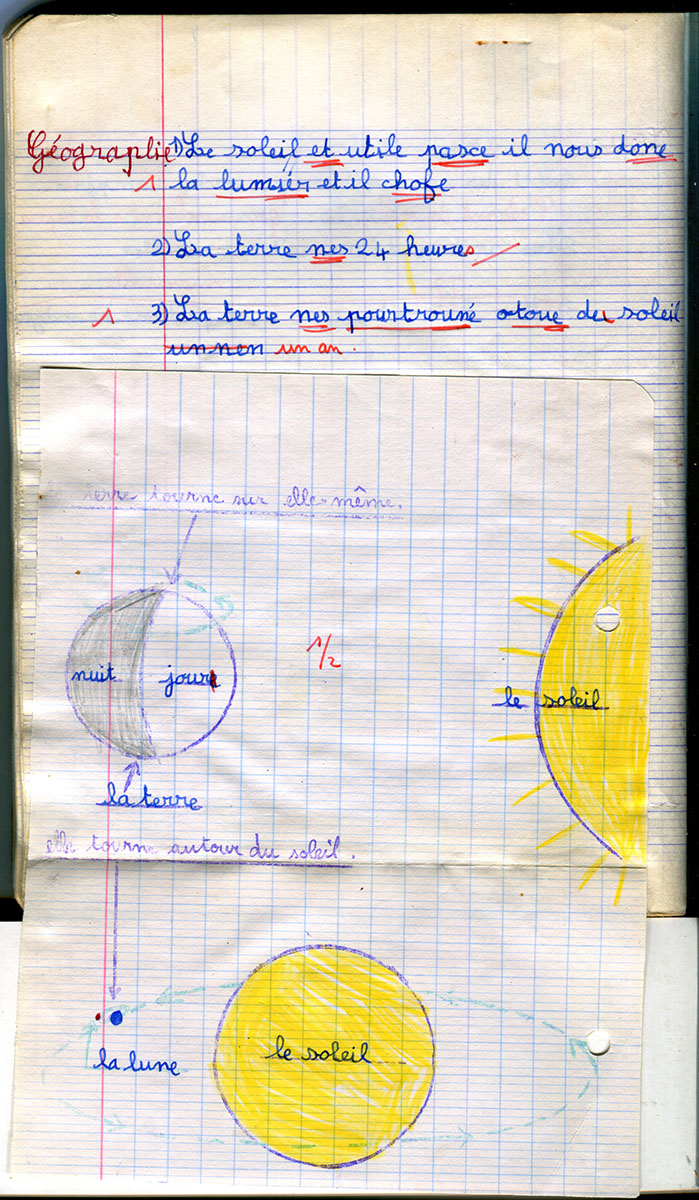 Géographie 1) Le soleil et utile pasce il nous done
1 la lumiér et il chofe
2) La terre nes 24 heures
1 3) La terre nes pourtrouné otoue du soleil
un nen un an.
terre tourne sur elle-même.
1/2
nuit jour
le soleil
la terre
elle tourne autour du soleil.
le soleil
la lune